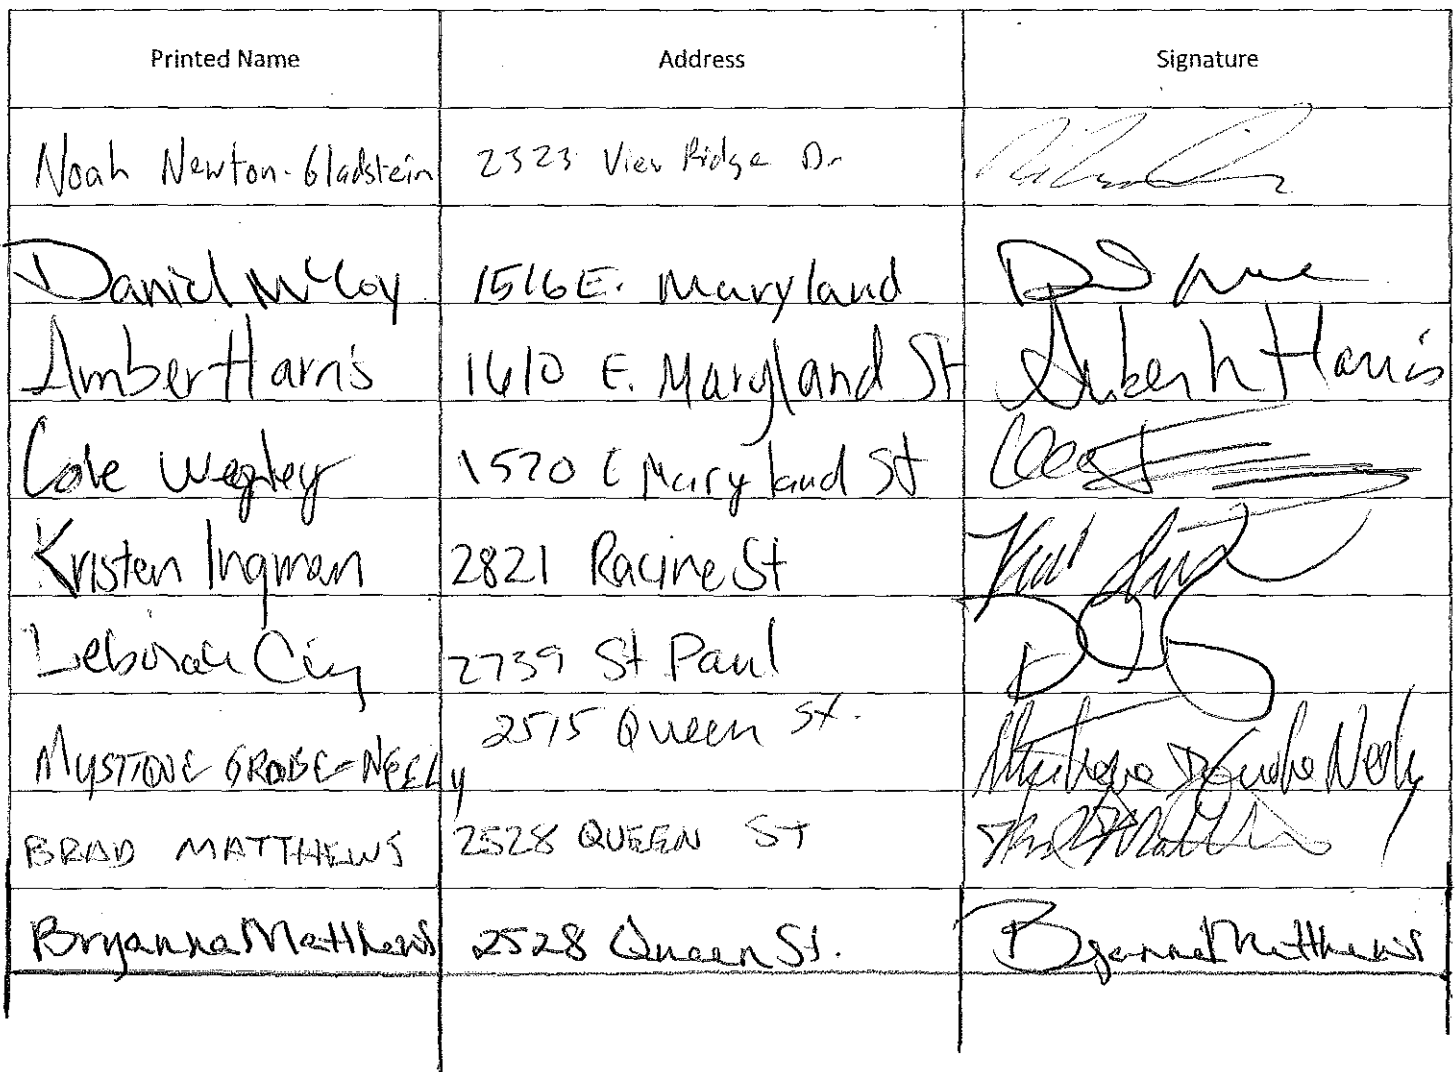 Printed Name Address Signature
Noah Newton-Gladstein 2323 View Ridge Dr
Daniel McCoy 1516 E. Maryland
Amber Harris 1610 E. Maryland St Amber h Harris
Cole Wegley 1520 E Maryland St
Kristen Ingman 2821 Racine St
Deborah 2739 St Paul
MYSTIQUE GROBE-NEELY 2515 Queen St.
BRAD MATTHEWS 2528 QUEEN ST
Bryanna Matthews 2528 Queen St. Bryanna Matthews